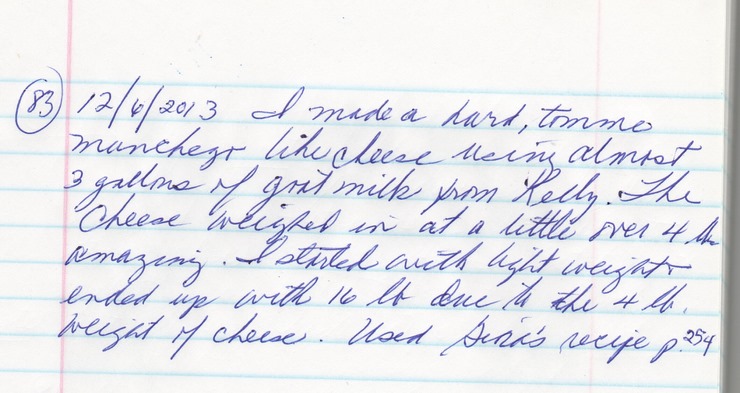 (83) 12/6/2013 I made a hard, tomme
manchego like cheese using almost
3 gallons of goat milk from Kelly. The
Cheese weighed in at a little over 4 lb
amazing. I started with light weight &
ended up with 16 lb due to the 4 lb.
weight of cheese. Used recipe p. 254